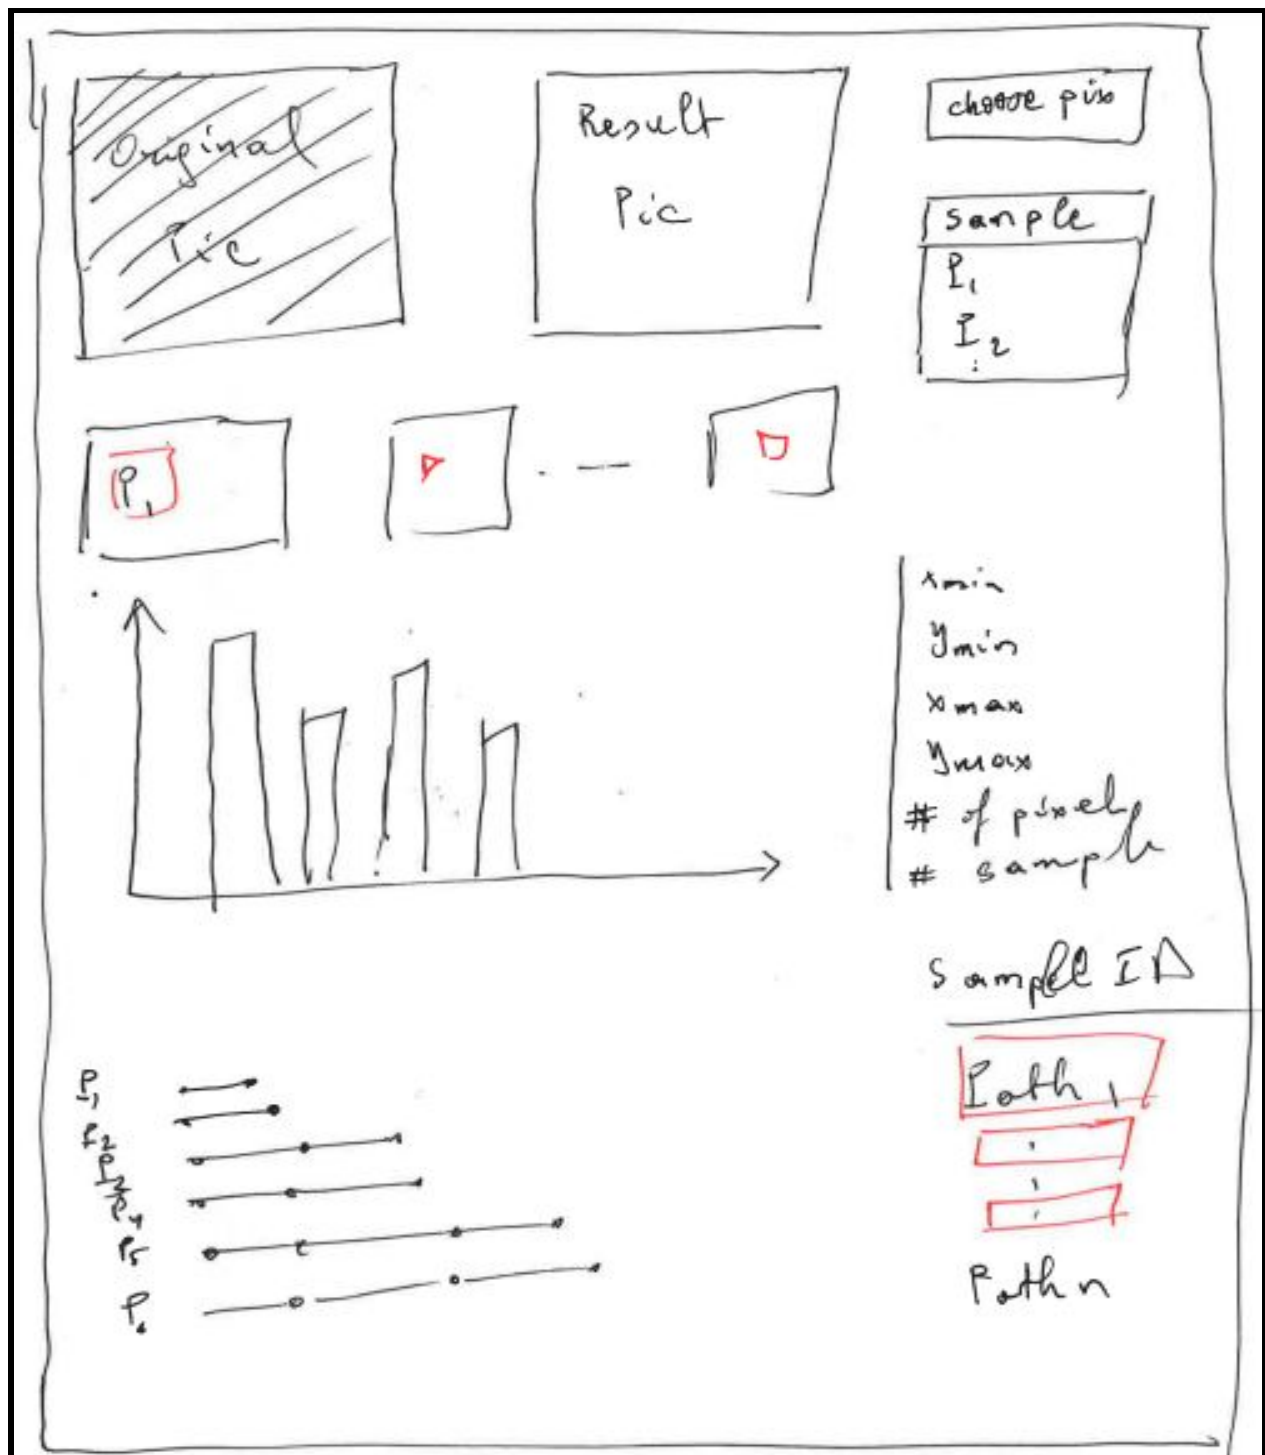 Original
Pic
Result
Pic
choose pix
sample
P1
P2
:
P1
xmin
ymin
xmax
ymax
# of pixel
# sample
Sample ID
Path 1
Path n
P1
P2
P3
P4
P5
P6